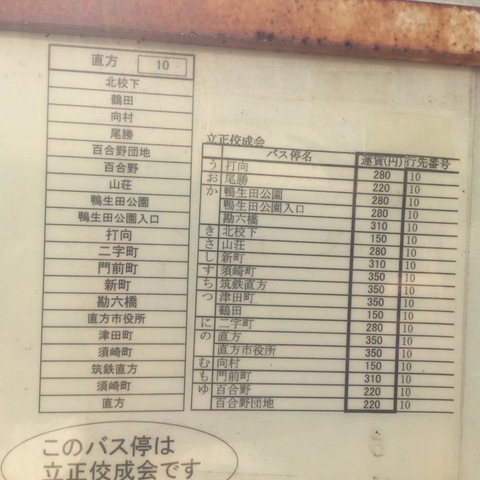 直方 10
北校下
鶴田
向村
尾勝
百合野団地
百合野
山荘
鴨生田公園
鴨生田公園入口
打向
二字町
門前町
新町
勘六橋
直方市役所
津田町
須崎町
筑鉄直方
須崎町
直方
立正佼成会
バス停名 運賃(円) 行先番号
う 打向 280 10
お 尾勝 220 10
か 鴨生田公園 280 10
鴨生田公園入口 280 10
勘六橋 310 10
き 北校下 150 10
さ 山荘 280 10
し 新町 310 10
す 須崎町 350 10
ち 筑鉄直方 350 10
つ 津田町 350 10
鶴田 150 10
に 二字町 280 10
の 直方 350 10
直方市役所 350 10
む 向村 150 10
も 門前町 310 10
ゆ 百合野 220 10
百合野団地 220 10
このバス停は
立正佼成会です